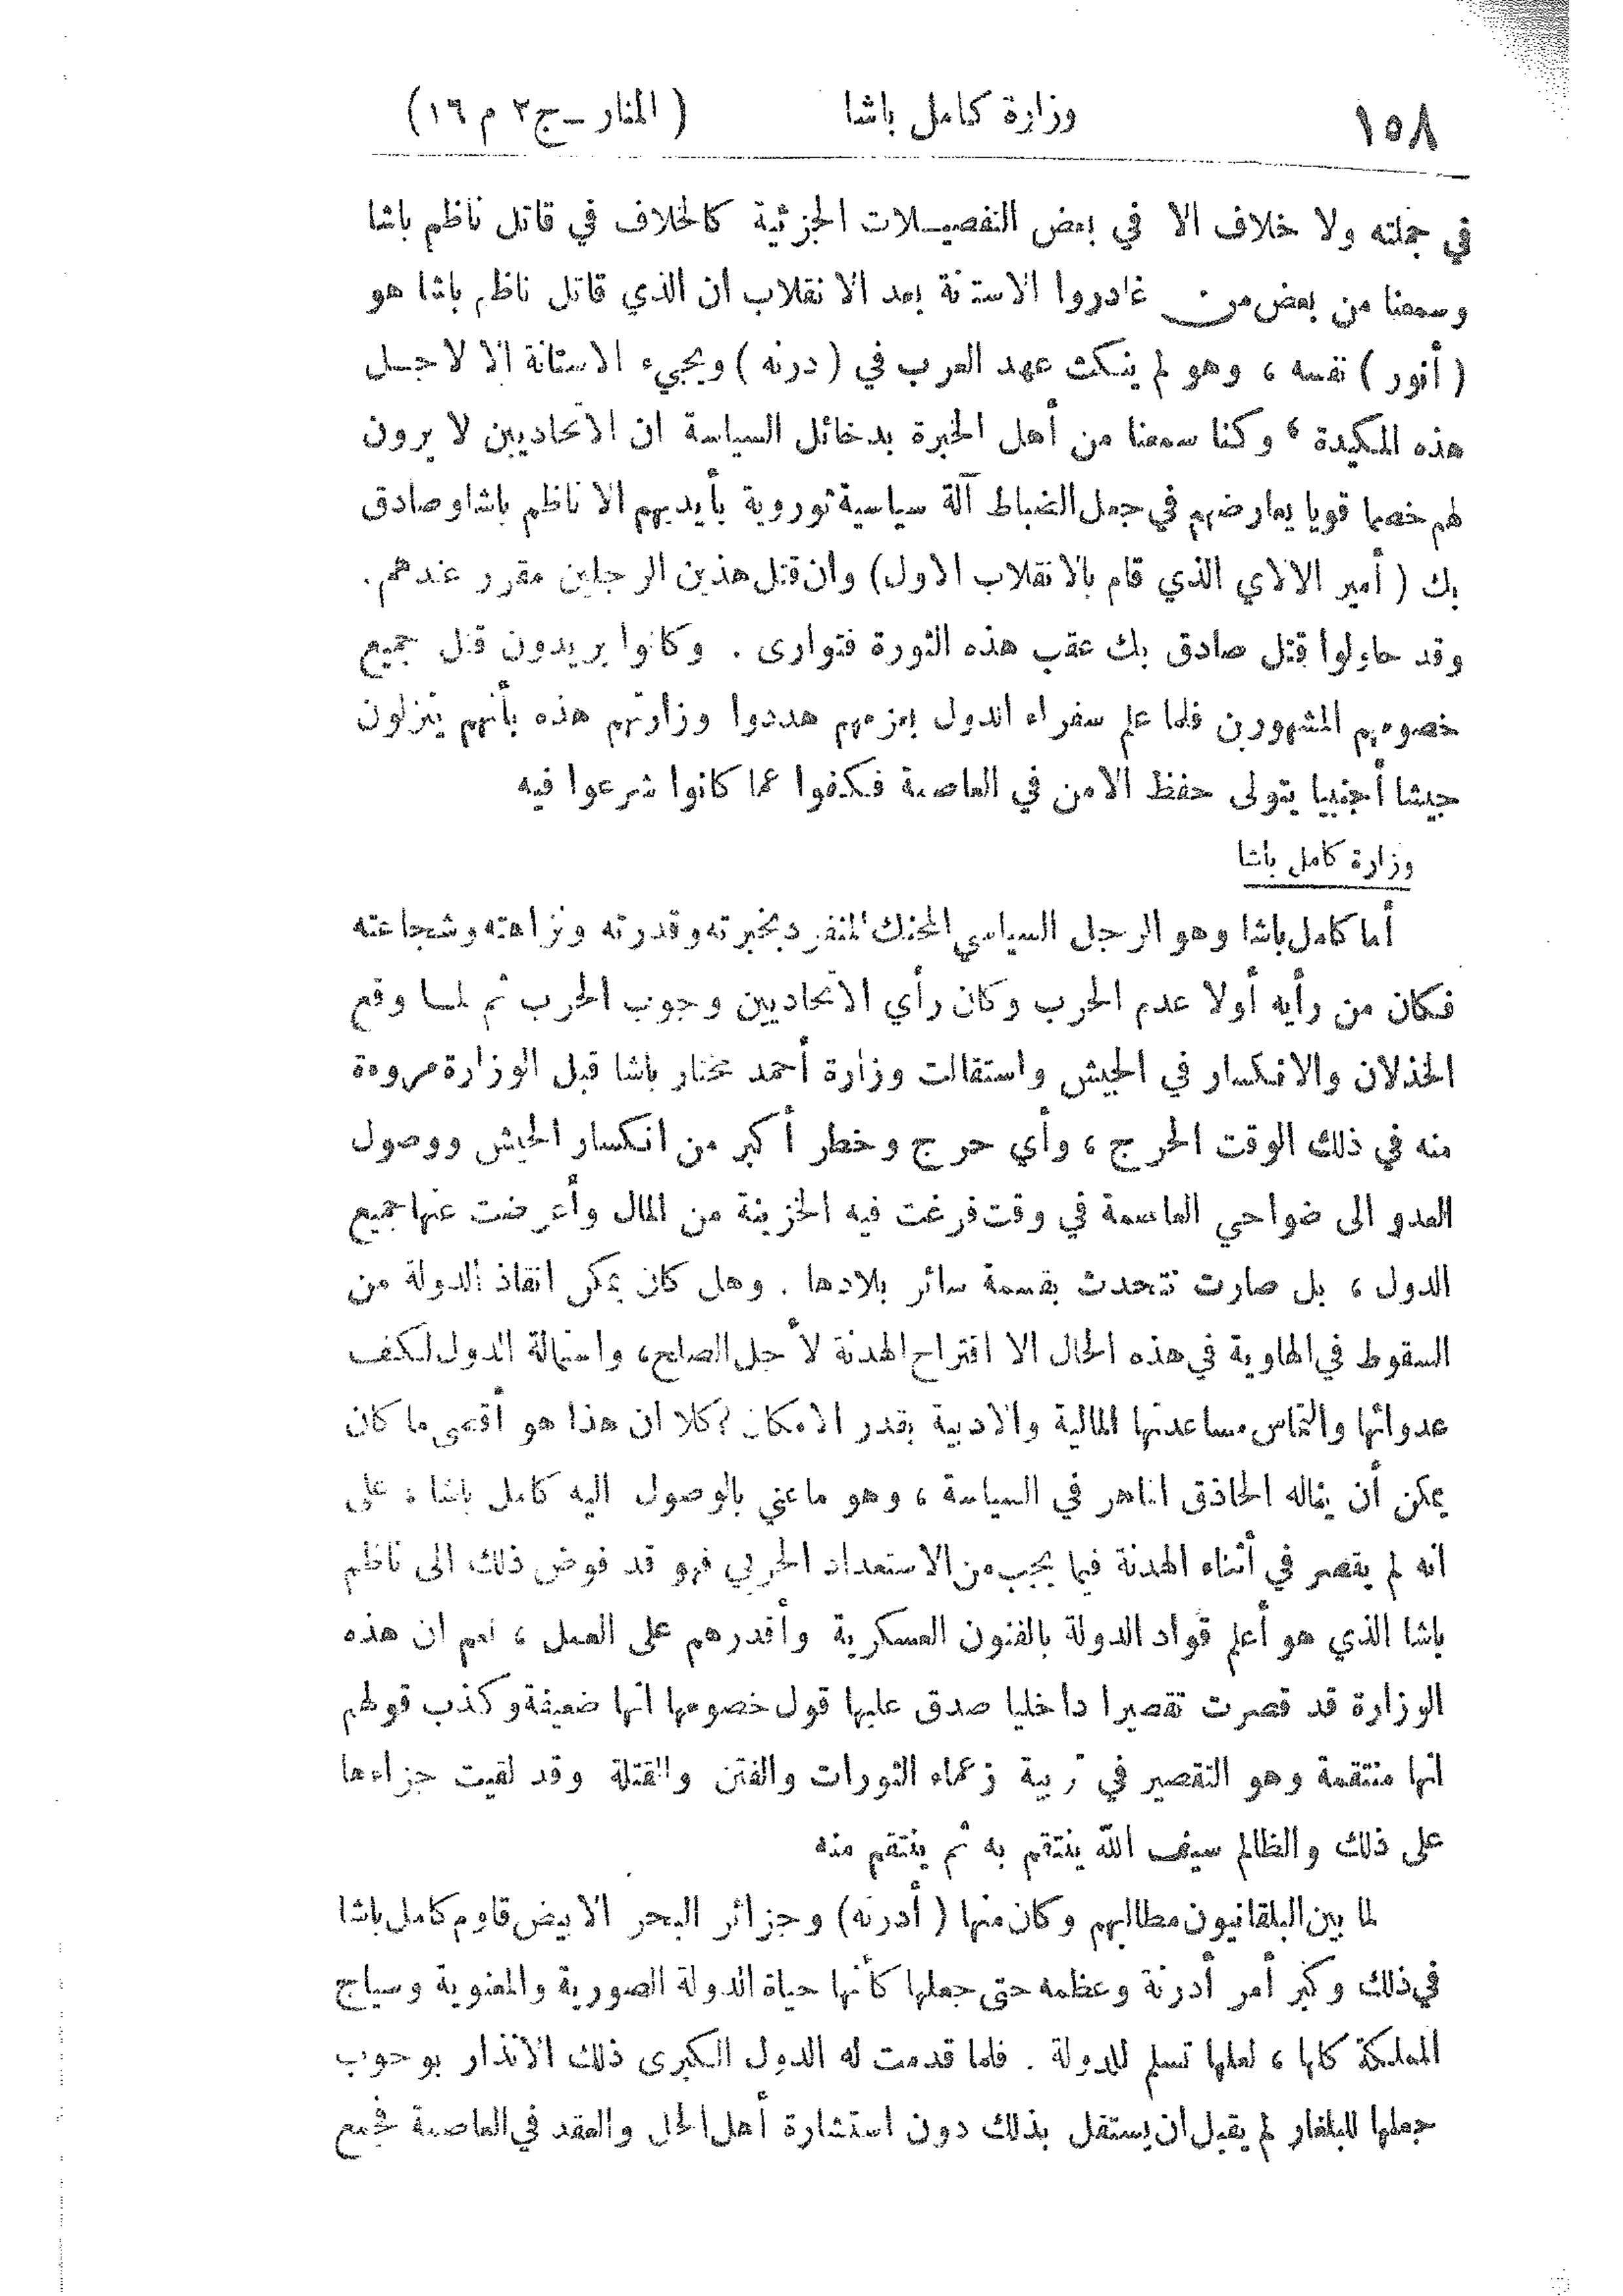 ١٥٨ وزارة كامل باشا ( المنار ــ ج ٢ م ١٦ )
في جملته ولا خلاف الا في بعض التفصيلات الجزئية كالخلاف في قاتل ناظم باشا
وسمعنا من بعض من غادروا الاستانة بعد الانقلاب ان الذي قاتل ناظم باشا هو
( أنور ) نفسه ، وهو لم ينكث عهد العرب في ( درنه ) ويجيء الاستانة الا لاجل
هذه المكيدة ، وكنا سمعنا من أهل الخبرة بدخائل السياسة ان الاتحاديين لا يرون
لهم خصما قويا يعارضهم في جعل الضباط آلة سياسية ثوروية بأيديهم الا ناظم باشا وصادق
بك ( أمير الالاي الذي قام بالانقلاب الاول) وان قتل هذين الرجلين مقرر عندهم .
وقد حاولوا قتل صادق بك عقب هذه الثورة فتوارى . وكانوا يريدون قتل جميع
خصومهم المشهورين فلما علم سفراء الدول بعزمهم هددوا وزارتهم هذه بأنهم ينزلون
جيشا أجنبيا يتولى حفظ الامن في العاصمة فكفوا عما كانوا شرعوا فيه
وزارة كامل باشا
أما كامل باشا وهو الرجل السياسي المحنك المنفرد بخبرته وقدرته ونزاهته وشجاعته
فكان من رأيه أولا عدم الحرب وكان رأي الاتحاديين وجوب الحرب ثم لما وقع
الخذلان والانكسار في الجيش واستقالت وزارة أحمد مختار باشا قبل الوزارة مروءة
منه في ذلك الوقت الحرج ، وأي حرج وخطر أكبر من انكسار الجيش ووصول
العدو الى ضواحي العاصمة في وقت فرغت فيه الخزينة من المال وأعرضت عنها جميع
الدول ، بل صارت تتحدث بقسمة سائر بلادها . وهل كان يمكن انقاذ الدولة من
السقوط في الهاوية في هذه الحال الا اقتراح الهدنة لأجل الصلح ، واستمالة الدول لكف
عدوانها والتماس مساعدتها المالية والادبية بقدر الامكان ؟ كلا ان هذا هو أقصى ما كان
يمكن أن يناله الحاذق الماهر في السياسة ، وهو ما عني بالوصول اليه كامل باشا ، على
انه لم يقصر في أثناء الهدنة فيما يجب من الاستعداد الحربي فهو قد فوض ذلك الى ناظم
باشا الذي هو أعلم قواد الدولة بالفنون العسكرية وأقدرهم على العمل ، نعم ان هذه
الوزارة قد قصرت تقصيرا داخليا صدق عليها قول خصومها انها ضعيفة وكذب قولهم
انها منتقمة وهو التقصير في تربية زعماء الثورات والفتن والقتلة وقد لقيت جزاءها
على ذلك والظالم سيف الله ينتقم به ثم ينتقم منه
لما بين البلقانيون مطالبهم وكان منها ( أدرنه) وجزائر البحر الابيض قاوم كامل باشا
في ذلك وكبر أمر أدرنة وعظمه حتى جعلها كأنها حياة الدولة الصورية والمعنوية وسياج
المملكة كلها ، لعلها تسلم للدولة . فلما قدمت له الدول الكبرى ذلك الانذار بوجوب
جعلها للبلغار لم يقبل ان يستقل بذلك دون استشارة أهل الحل والعقد في العاصمة فجمع